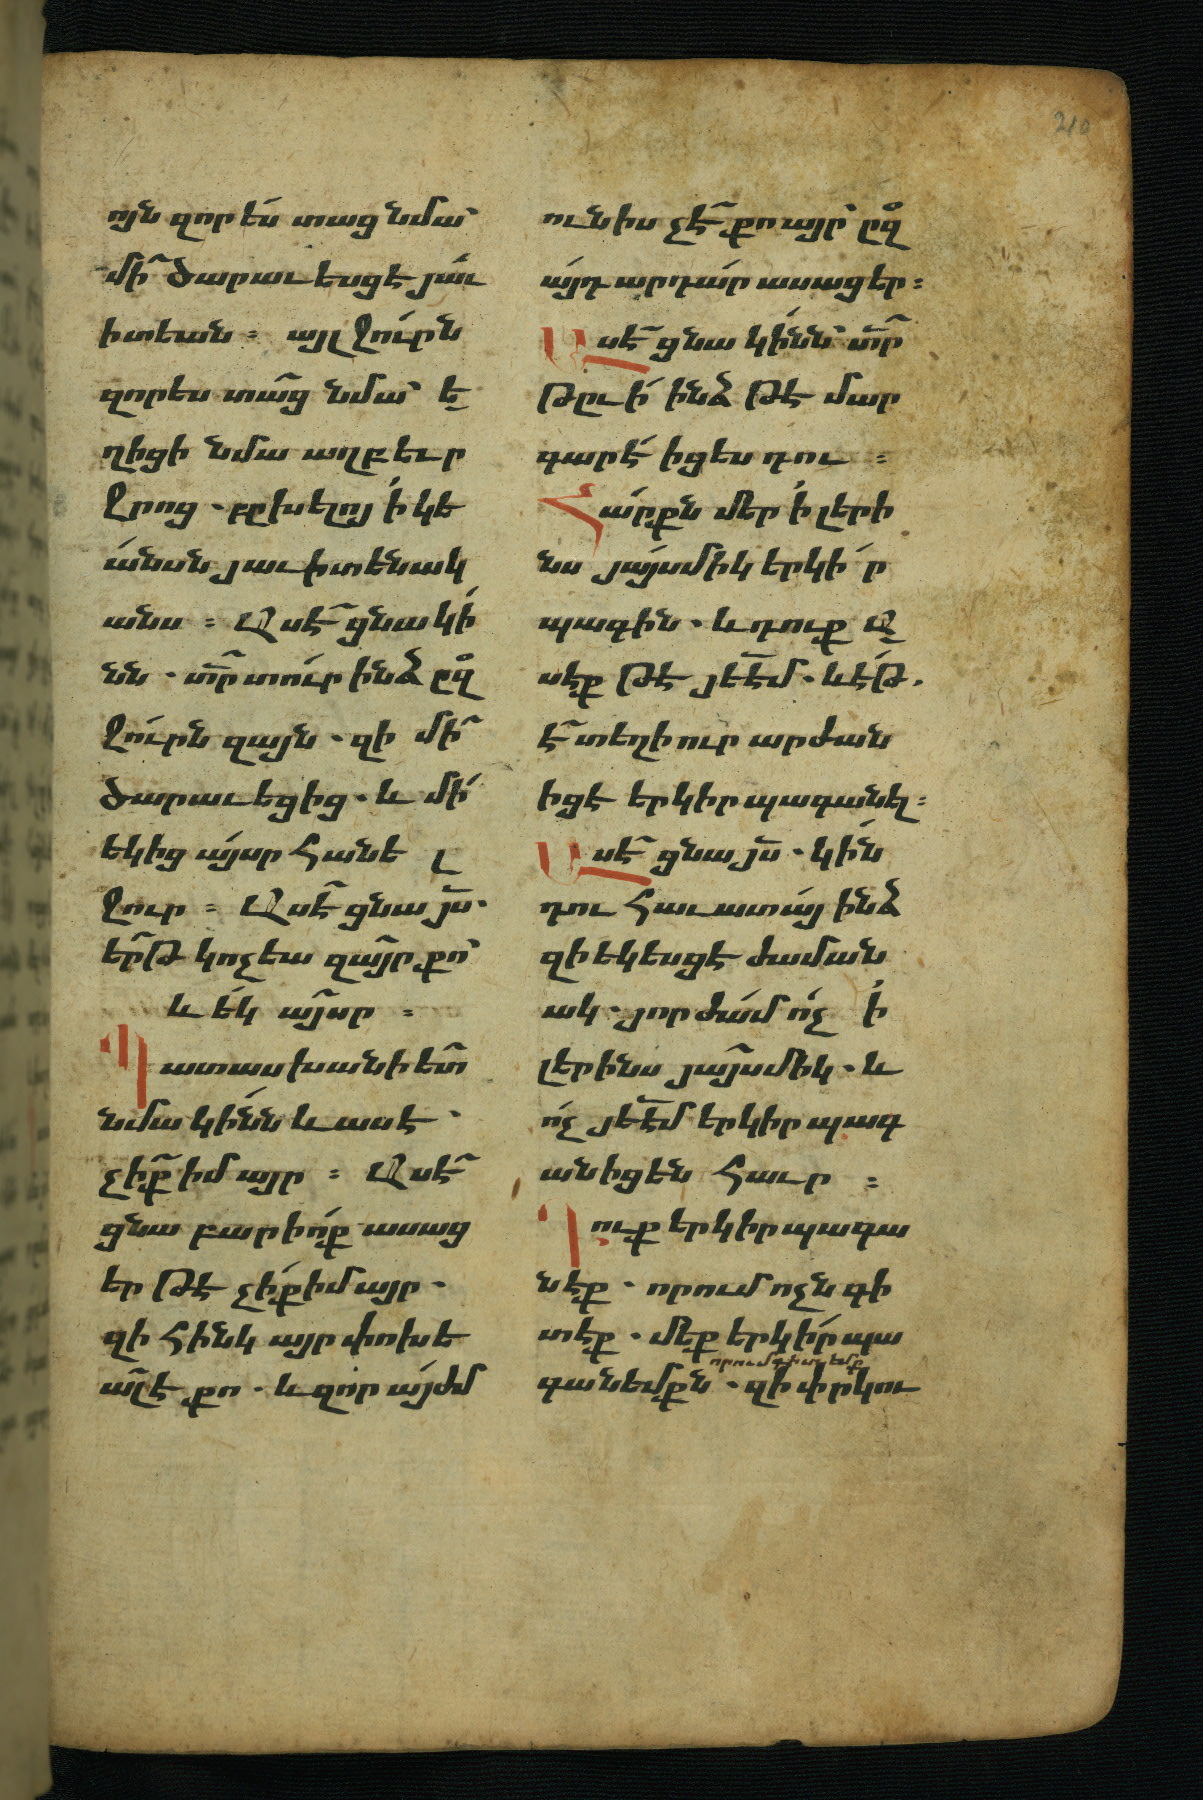 ոյն զոր ես տաց նմա՝
մի՛ ծարաւեսցէ յաւ
իտեան ։ այլ ջուրն
զոր ես տաց նմա՝ ե
ղիցի նմա աղբեւր
ջրոց . բըխելոյ ի կե
անսն յաւիտենակ
անս ։ Ասէ ցնա կի
նն . տր տուր ինձ ըզ
ջուրն զայն . զի մի՛
ծարաւեցից . և մի՛
եկից այսր հանել
ջուր ։ Ասէ ցնա յս .
երթ կոչեա զայր քո՝
և եկ այսր ։
Պատասխանի ետ
նմա կինն և ասէ .
չիք իմ այր ։ Ասէ
ցնա բարիոք ասաց
եր թէ չիք իմ այր .
զի հինկ այր փոխե
ալ է քո . և զոր այժմ
ունիս չէ քո այր՝ ըզ
այդ արդար ասացեր ։
Ասէ ցնա կինն՝ տր
թըւի ինձ թէ մար
գարէ իցես դու ։
Հարքն մեր ի լերի
նս յայսմիկ երկիր
պագին . և դուք ա
սէք թէ յեէմ . և էթ .
է տեղի ուր արժան
իցէ երկիր պագանել ։
Ասէ ցնա յս . կին
դու հաւատայ ինձ
զի եկեսցէ ժաման
ակ . յորժամ ոչ ի
լերինս յայսմիկ . և
ոչ յեէմ երկիր պագ
անիցեն հաւր ։
Դուք երկիր պագա
նէք . որում ոչն գի
տէք . մեք երկիր պա
որում գիտեմք
գանեմքն . զի փրկու
210